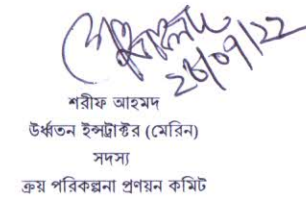 ২৮/০৭/২২
শরীফ আহমদ
উর্ধ্বতন ইন্সট্রাক্টর (মেরিন)
সদস্য
ক্রয় পরিকল্পনা প্রণয়ন কমিট